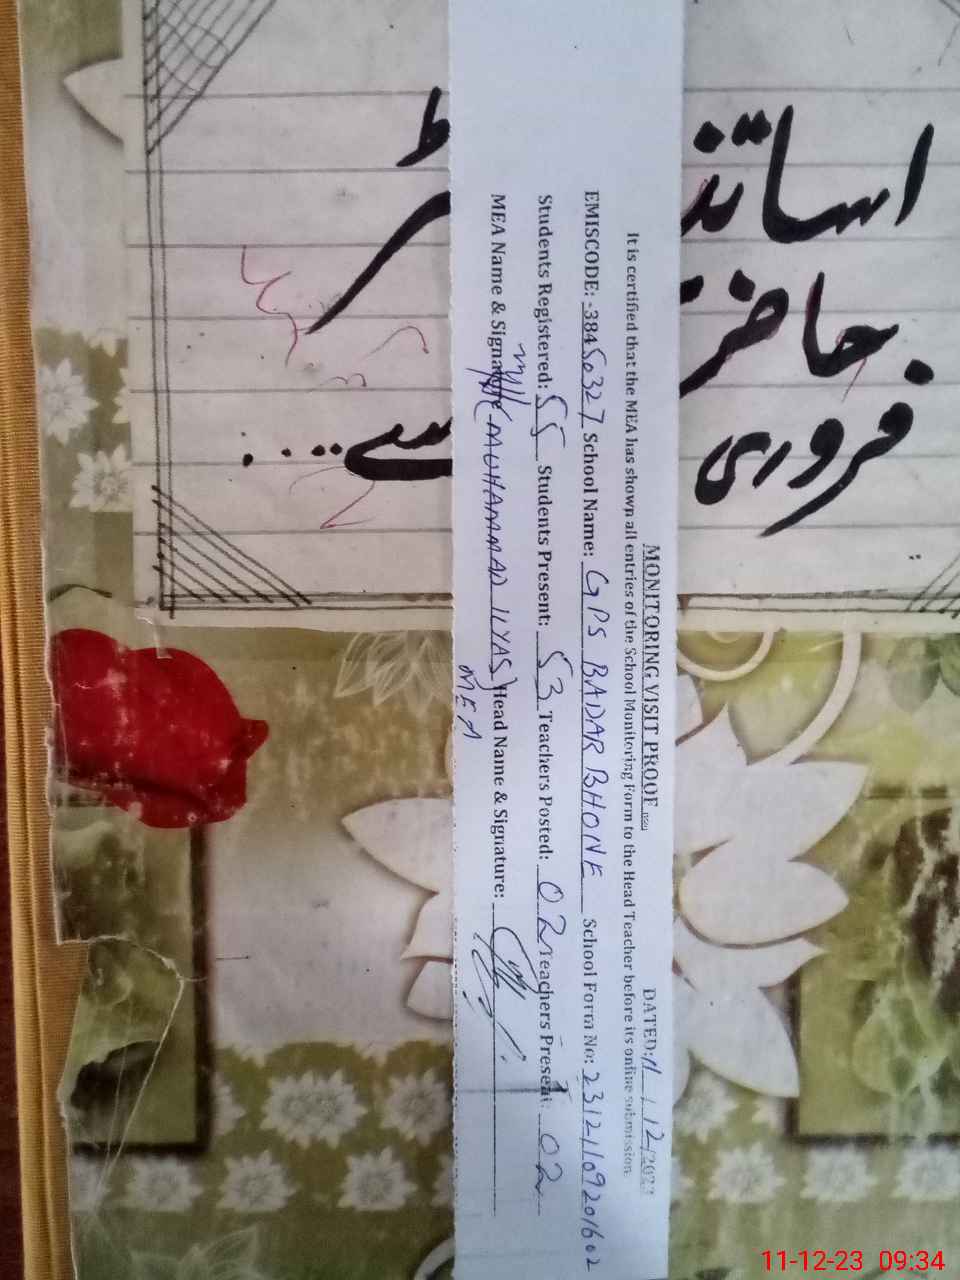 MONITORING VISIT PROOF
DATED: 11 / 12/2023
It is certified that the MEA has shown all entries of the School Monitoring Form to the Head Teacher before its online submission.
EMISCODE: -38450327 School Name: GPS BADAR BHONE School Form No: 23121109201602
Students Registered: 55 Students Present: 53 Teachers Posted: 02 Teachers Present: 02
MEA Name & Signature (MUHAMMAD ILYAS) Head Name & Signature:
MEA
حاضر
فروری
سے...
11-12-23 09:34